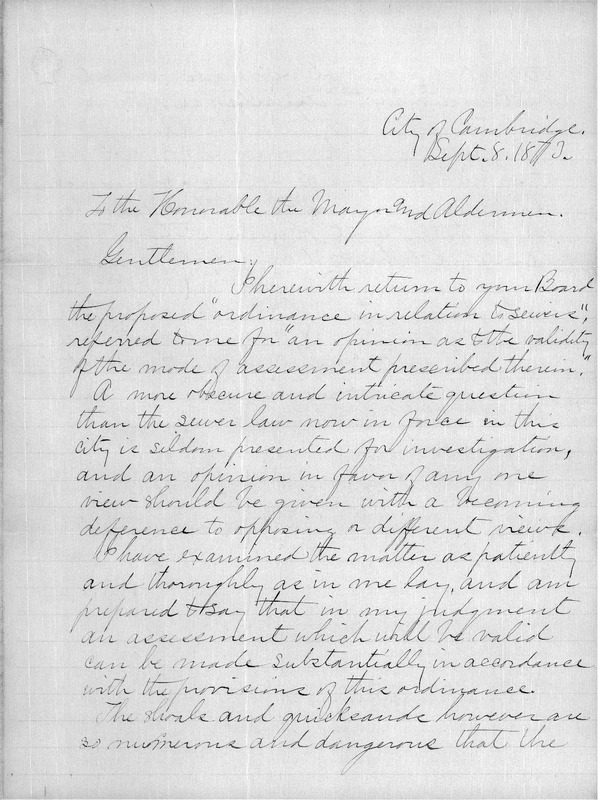 City of Cambridge.
Sept. 8. 1873.
To the Honorable the Mayor and Aldermen.
Gentlemen,
I herewith return to your Board
the proposed "ordinance in relation to sewers",
referred to me for "an opinion as to the validity
of the mode of assessment prescribed therein."
A more obscure and intricate question
than the sewer law now in force in this
city is seldom presented for investigation,
and an opinion in favor of any one
view should be given with a becoming
deference to opposing or different views.
I have examined the matter as patiently
and thoroughly as in me lay, and am
prepared to say that in my judgment
an assessment which will be valid
can be made substantially in accordance
with the provisions of this ordinance.
The shoals and quicksands however are
so numerous and dangerous that the